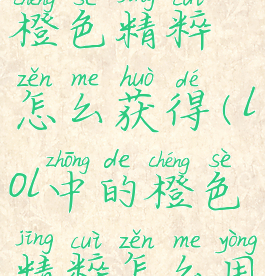 chéng sè jīng cuì
橙色精粹
zěn me huò dé
怎么获得(l
zhōng de chéng sè
ol中的橙色
jīng cuì zěn me yòng
精粹怎么用